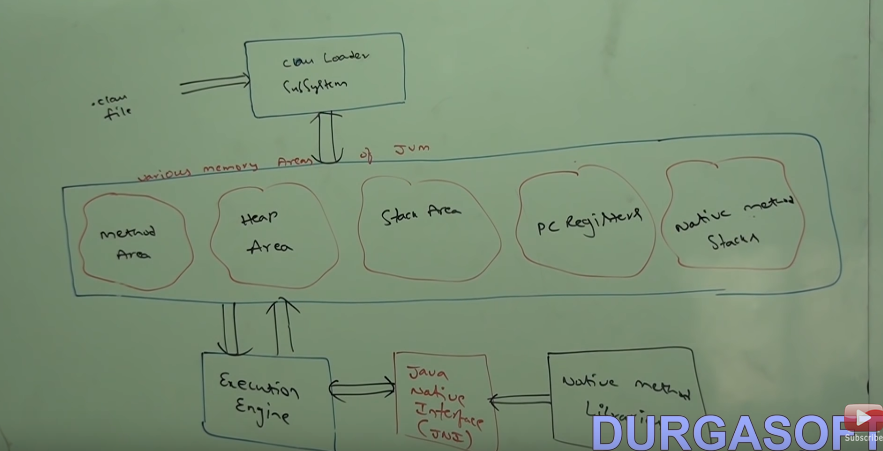 class Loader
SubSystem
.class
file
various memory Areas of JVM
Method
Area
Heap
Area
Stack Area
PC Registers
Native method
Stacks
Execution
Engine
Java
Native
Interface
(JNI)
Native method
DURGASOFT
Subscribe